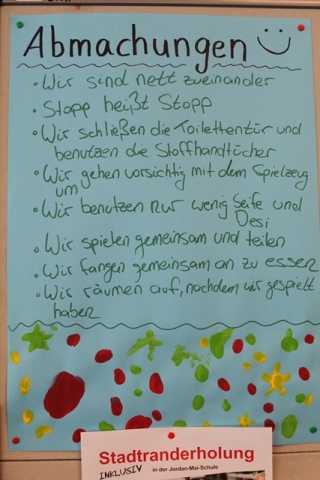 Abmachungen
• Wir sind nett zueinander
• Stopp heißt Stopp
• Wir schließen die Toilettentür und
benutzen die Stoffhandtücher
• Wir gehen vorsichtig mit dem Spielzeug
um
• Wir benutzen nur wenig Seife und
Desi
• Wir spielen gemeinsam und teilen
• Wir fangen gemeinsam an zu essen
• Wir räumen auf, nachdem wir gespielt
haben
Stadtranderholung
INKLUSIV in der Jordan-Mai-Schule